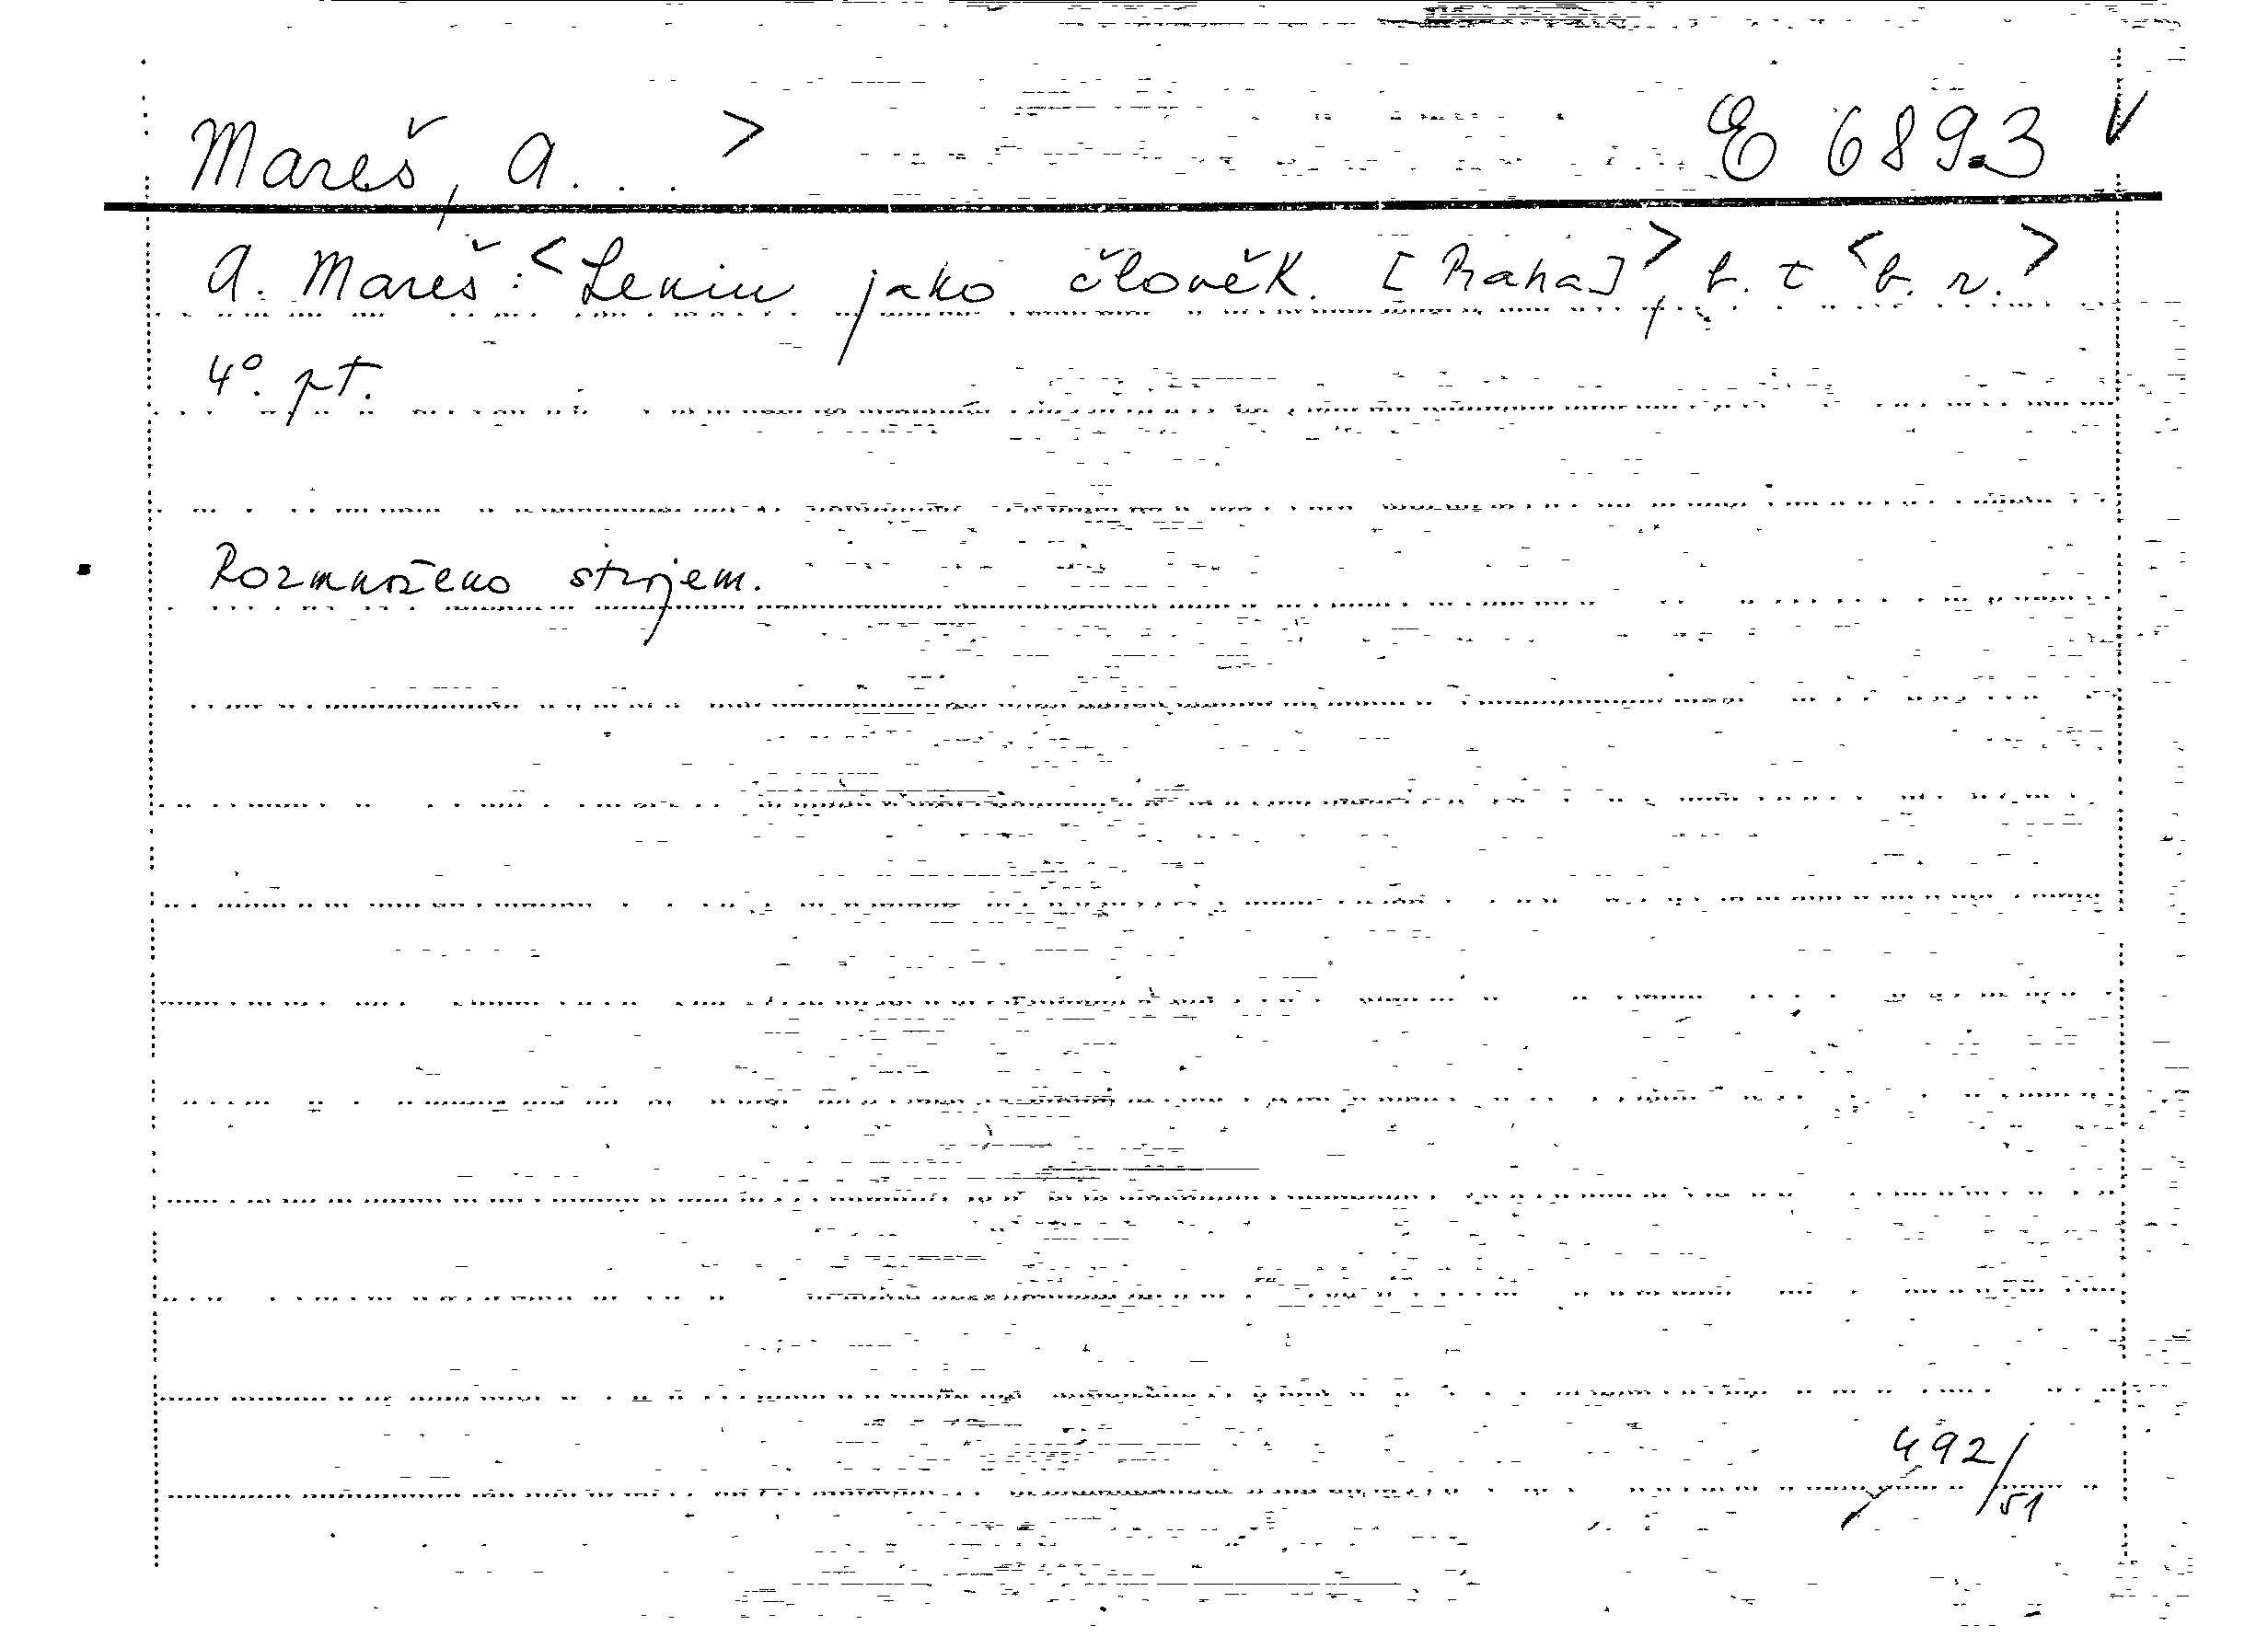 Mareš, A. . . > E 6893 v
A. Mareš: < Lenin jako člověk. [Praha] >, b. t < b. r. >
4°. pt.
Rozmnoženo strojem.
492/51